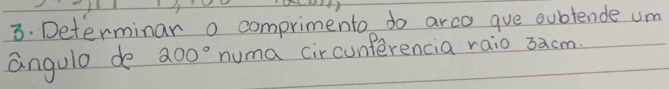 3. Determinar o comprimento do arco que subtende um
ângulo de 200° numa circunferencia raio 32cm.